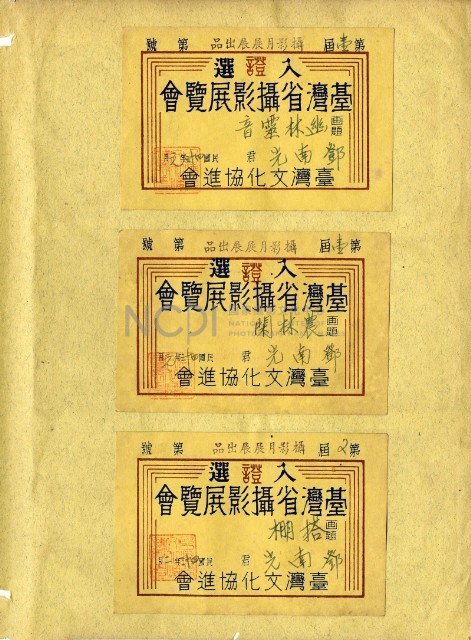 第壹屆 攝影月展展出品 第 號
入證選
臺灣省攝影展覽會
畫題 幽林靈音
鄧南光 君 民國 年元月
臺灣文化協進會
第壹屆 攝影月展展出品 第 號
入證選
臺灣省攝影展覽會
畫題 農林
鄧南光 君 民國 年 月
臺灣文化協進會
第2屆 攝影月展展出品 第 號
入證選
臺灣省攝影展覽會
畫題 搭棚
鄧南光 君 民國 年二月
臺灣文化協進會
NCPI